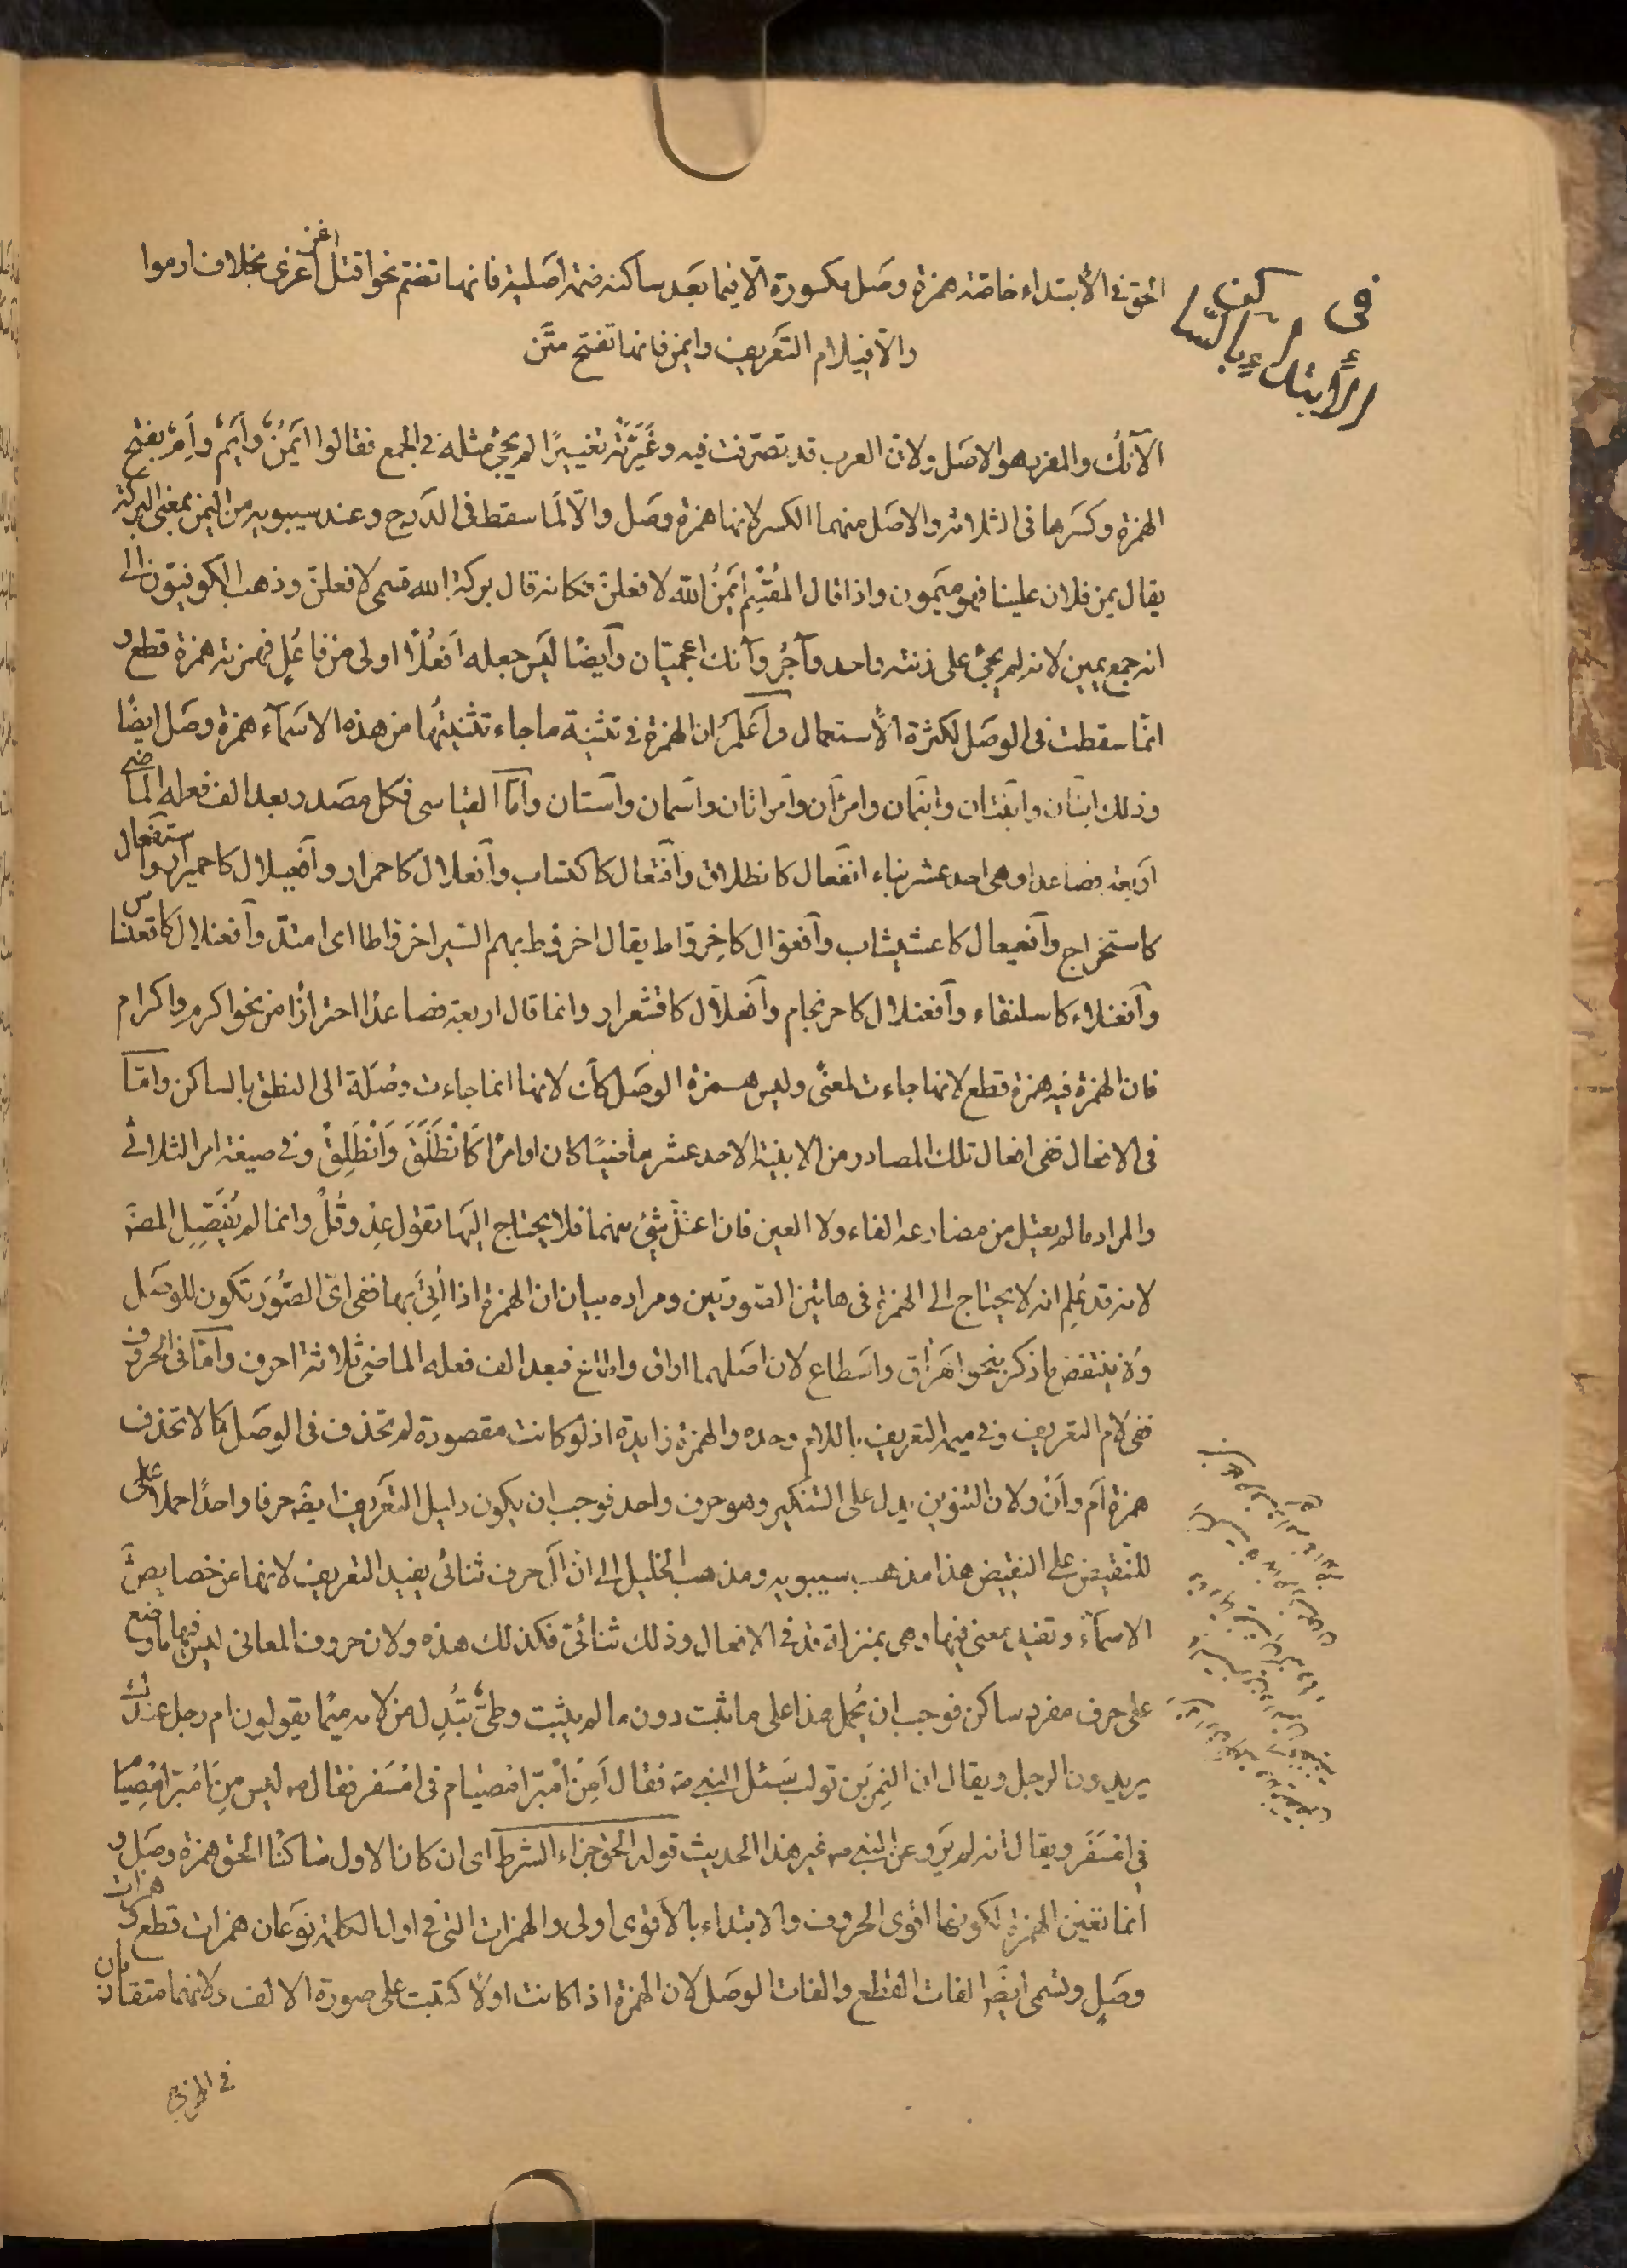 في كيف
الابتداء بالسا
الحق في الابتداء خاصة همزة وصل مكسورة الا فيما بعد ساكنه ضمة اصلية فانها تضم نحو اقتل اغز اغزى بخلاف ارموا
والا في لام التعريف وايمن فانها تفتح متن
الآنُك والمفرد هو الاصل ولان العرب قد تصرفت فيه وغَيَّرَتْه تغييرًا لم يجئ مثله في الجمع فقالوا ايمَنُ وايَمُ واَمُ بفتح
الهمزة وكسرها في الثلاثة والاصل منهما الكسر لانها همزة وصل والا لَما سقط في الدرج وعند سيبويه من اليمن بمعنى البركة
يقال يمن فلان علينا فهو ميمون واذا قال المُقسِم ايمَنُ الله لافعلن فكانه قال بركة الله قسمى لافعلن وذهب الكوفيون الى
انه جمع يمين لانه لم يجئ على زنته واحد وآجُر وآنك اعجميتان وايضًا ليس جعله افعُلًا اولى من فاعُلٍ فهمزته همزة قطع و
انما سقطت في الوصل لكثرة الاستعمال واعلم ان الهمزة في تثنية ما جاء تثنيتها من هذه الاسماء همزة وصل ايضًا
وذلك ابنان وابنتان وابنمان وامرآن وامراتان واسمان واستان واما القياسى فكل مصدر بعد الف فعله الماضي
اربعة فصاعدا وهي احد عشر بناء انفعال كانطلاق وافتعال كاكتساب وافعلال كاحمرار وافعيلال كاحميرار واستفعال
كاستخراج وافعيعال كاعشيشاب وافعوال كاخِروّاط يقال اخروط بهم السير اخرواطا اى امتد وافعنلال كاقعنساس
وافعنلاء كاسلنقاء وافعنلال كاحرنجام وافعلّال كاقشعرار وانما قال اربعة فصاعدًا احترازًا من نحو اكرم واكرام
فان الهمزة فيه همزة قطع لانها جاءت لمعنًى وليس همزة الوصل كان لانها انما جاءت وصلة الى النطق بالساكن واما
في الافعال ففي افعال تلك المصادر من الابنية الاحد عشر ماضيًا كان او امرًا كَاْنطَلَقَ وَاْنطَلِقْ وفي صيغة امر الثلاثى
والمراد ما لم يعتل من مضارعه الفاء ولا العين فان اعتلّ شئ منهما فلا يحتاج اليها تقول عِدْ وقُلْ وانما لم يُفَصِّلِ المصَ
لانه قد عُلِم انه لا يحتاج الى الهمزة في هاتين الصورتين ومراده بيان ان الهمزة اذا اُتِىَ بها ففي اىّ الصُّوَر تكون للوصل
ولا ينتقض ما ذكر بنحو اهراق واسطاع لان اصلهما اراق واطاع فبعد الف فعله الماضي ثلاثة احرف واما في الحروف
ففي لام التعريف وفي ميم التعريف باللام وحده والهمزة زايدة اذ لو كانت مقصودة لم تحذف في الوصل كما لا تحذف
همزة اَم واَنْ ولان التنوين يدل على التنكير وهو حرف واحد فوجب ان يكون دليل التعريف ايضَ حرفا واحدًا حملا على
للنقيض على النقيض هذا مذهب سيبويه ومذهب الخليل الى ان اَلْ حرف ثنائى يفيد التعريف لانها من خصايص
الاسماء وتفيد معنى فيها وهي بمنزلة قد في الافعال وذلك ثنائىّ فكذلك هذه ولان حروف المعانى ليس فيها ما وضع
على حرف مفرد ساكن فوجب ان يُحمل هذا على ما ثبت دون ما لم يثبت وطىّ تُبْدِل من لامه ميمًا يقولون ام رجل عندك
يريدون الرجل ويقال ان النمِرَ بن تولب سَئل النبى صه فقال اَمِنَ اْمبِرّ امْصيام في امْسَفر فقال صه ليس مِنَ اْمْبِرّ امْصِيَا
في امْسَفَر ويقال انه لم يَرو عن النبى صه غير هذا الحديث قوله الحق جزاء الشرط اى ان كان الاول ساكنًا الحق همزة وصل و
انما تعين الهمزة لكونها اقوى الحروف والابتداء بالاقوى اولى والهمزات التى في اول الكلمة نوعان همزات قطع وهمزات
وصلٍ وتسمى ايضَ الفات القطع والفات الوصل لان الهمزة اذا كانت اولًا كتبت على صورة الالف ولانهما متقاربان
في المخرج